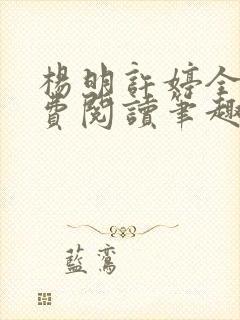 楊明許婷全
費閱讀筆趣
藍鸞